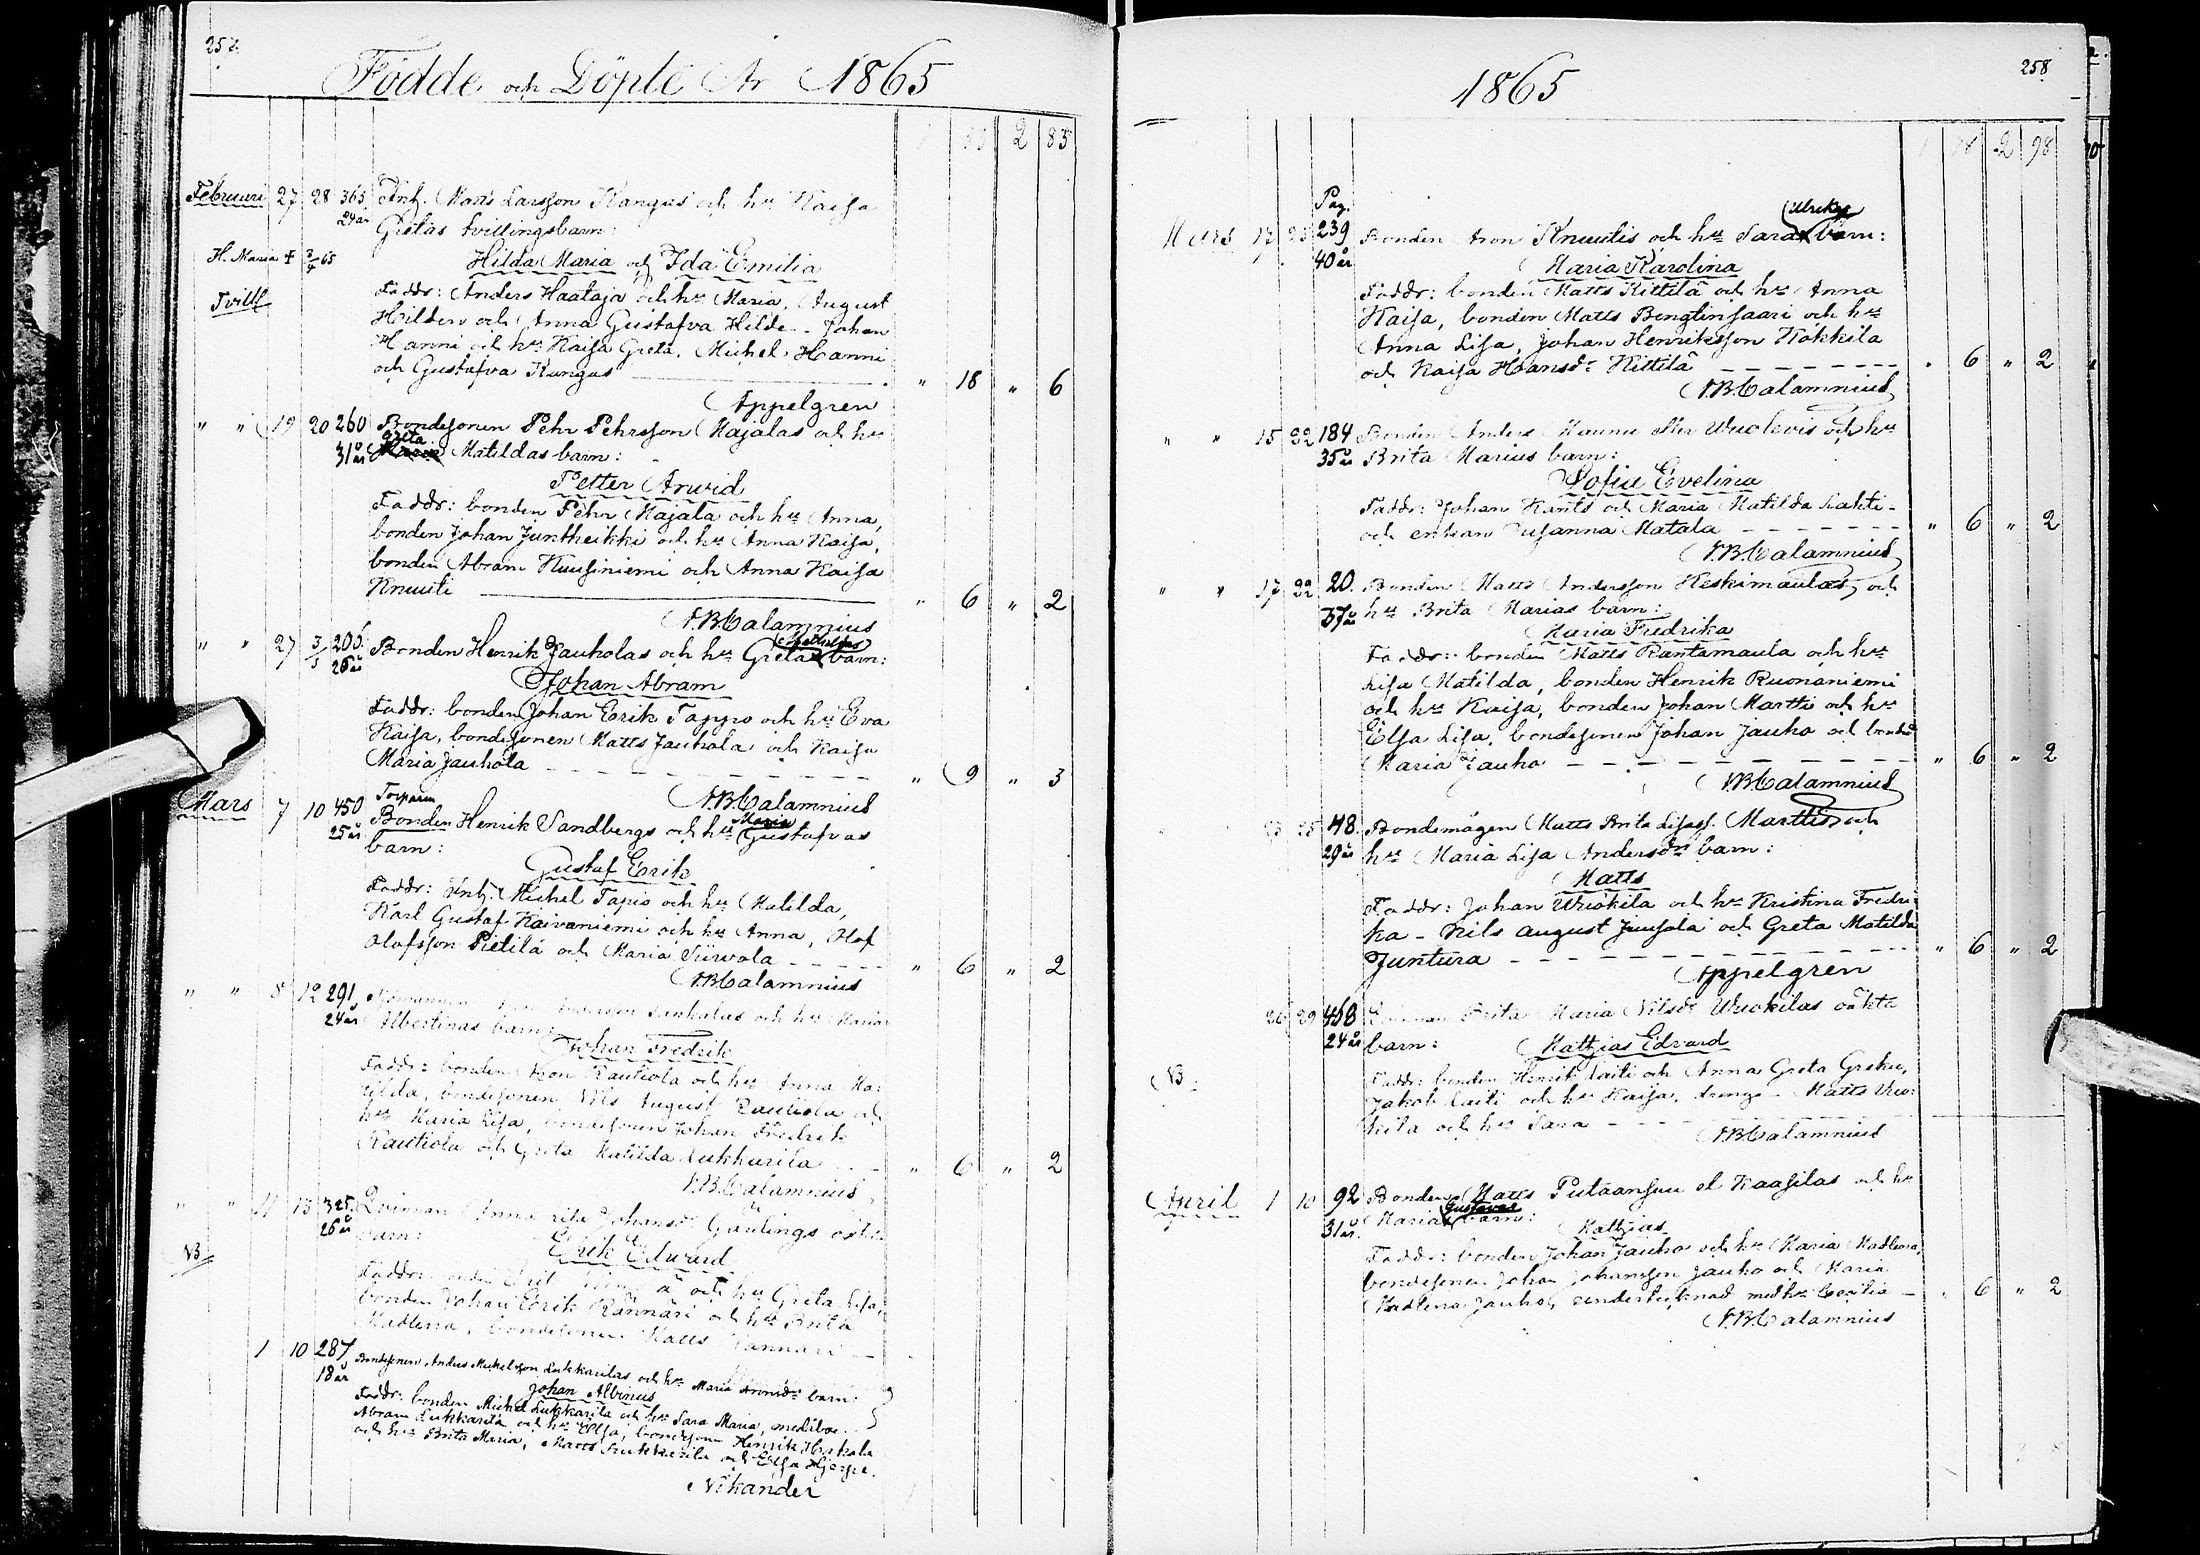 257.
Födde och Döpte År 1865
2 83
Februari 27 28 365 Inh. Matts Larsson Kangas och hu Kaisa
24 år
Gretas tvillingsbarn:
H. Maria † 3/4 65 Hilda Maria och Ida Emilia
Tvill
Faddr: Anders Haataja och hu Maria, August
Hilden och Anna Gustafva Hilde - Johan
Hanni och hu Kaisa Greta, Michel Hanni
och Gustafva Kangas " 18 " 6
Appelgren
" " 19 20 260 Bondesonen Pehr Pehrsson Majalas och hu
Greta
31 år Matildas barn:
Petter Arwid
Faddr: bonden Pehr Majala och hu Anna,
bonden Johan Juntheikki och hu Anna Kaisa,
bonden Abram Kuusiniemi och Anna Kaisa
Knuuti " 6 " 2
A.B. Calamnius
" " 27 3/3 206. Bonden Henrik Jauholas och hu Greta Mathildas barn:
26 år
Johan Abram
Faddr: bonden Johan Erik Tappo och hu Eva
Kaisa, bondesonen Matts Jauhola och Kaisa
Maria Jauhola " 9 " 3
A.B. Calamnius
Torparen
Mars 7 10 450 Bonden Henrik Sandbergs och hu Maria Gustafvas
25 år barn:
Gustaf Erik
Faddr: Inh. Michel Tapio och hu Matilda,
Karl Gustaf Kaivaniemi och hu Anna, Olof
Olofsson Pietilä och Maria Siirvola " 6 " 2
A.B. Calamnius
" " 8 12 291 Andersson och hu Maria
24 år Albertinas barn:
Johan Fredrik
Faddr: bonden Aron Rautiola och hu Anna Ma-
tilda, bondesonen Nils August Rautiola och
hu Maria Lisa, bondesonen Johan Fredrik
Rautiola och Greta Matilda Lukkarila " 6 " 2
A.B. Calamnius
" " 11 13 325. Qvinnan Anna Johansdr oäkta
26 år barn:
NB Erik Edward
Faddr: och hu Greta Lisa,
bonden Johan Erik Rännäri och hu Brita
Madlena, bondesonen Matts Rännäri
1 10 287 Bondesonen Anders Michelsson Lukkarilas och hu Maria Aronsdr barn:
18 år
Johan Albinus
Faddr: bonden Michel Lukkarila och hu Sara Maria,
Abram Lukkarila och hu Elsa, bondesonen Henrik Hakala
och hu Brita Maria, Matts Lukkarila och Elsa Hjerpe.
Nikander
1865
258
2 98
Pag.
Ulrikas
Mars 17 25 239 Bonden Aron Knuutis och hu Sara barn:
40 år
Maria Karolina
Faddr: bonden Matts Kittilä och hu Anna
Kaisa, bonden Matts Bengtinsaari och hu
Anna Lisa, Johan Henriksson Kokkila
och Kaisa Hansdr Kittilä " 6 " 2
A.B. Calamnius
" " 15 22 184 Bonden Anders Maunu eller Wuolevis och hu
35 år Brita Marias barn:
Sofia Evelina
Faddr: Johan Kants och Maria Matilda Lahti -
och enkan Susanna Matala " 6 " 2
A.B. Calamnius
" " 17 22 20. Bonden Matts Andersson Keskimaulas och
37 år hu Brita Marias barn:
Maria Fredrika
Faddr: bonden Matts Rantamaula och hu
Lisa Matilda, bonden Henrik Ruonaniemi
och hu Kaisa, bonden Johan Martti och hu
Elsa Lisa, bondesonen Johan Jauho och bondedr
Maria Jauho " 6 " 2
A.B. Calamnius
25 48. Bondemågen Matts Brita Lisass. Marttis och
29 år hu Maria Lisa Andersdrs barn:
Matts
Faddr: Johan Wuokila och hu Kristina Fredri-
ka - Nils August Junsola och Greta Matilda
Juntura " 6 " 2
Appelgren
26 29 458 Qvinnan Brita Maria Nilsdr Wuokilas oäkta
24 år barn: Mathias Edvard
NB.
Faddr: bonden Henrik Laiti och Anna Greta Greku,
Jakob Laiti och hu Kaisa, dreng - Matts Wuo-
kila och hu Sara
A.B. Calamnius
April 1 10 92 Bonden Matts Putaansuu el Kaasilas och hu
31 år. Maria Gustavas barn: Mathias
Faddr: bonden Johan Jauho och hu Maria Madlena,
bondesonen Johan Johansson Jauho och Maria
Madlena Jauho, undertecknad med hu Cecilia " 6 " 2
A.B. Calamnius